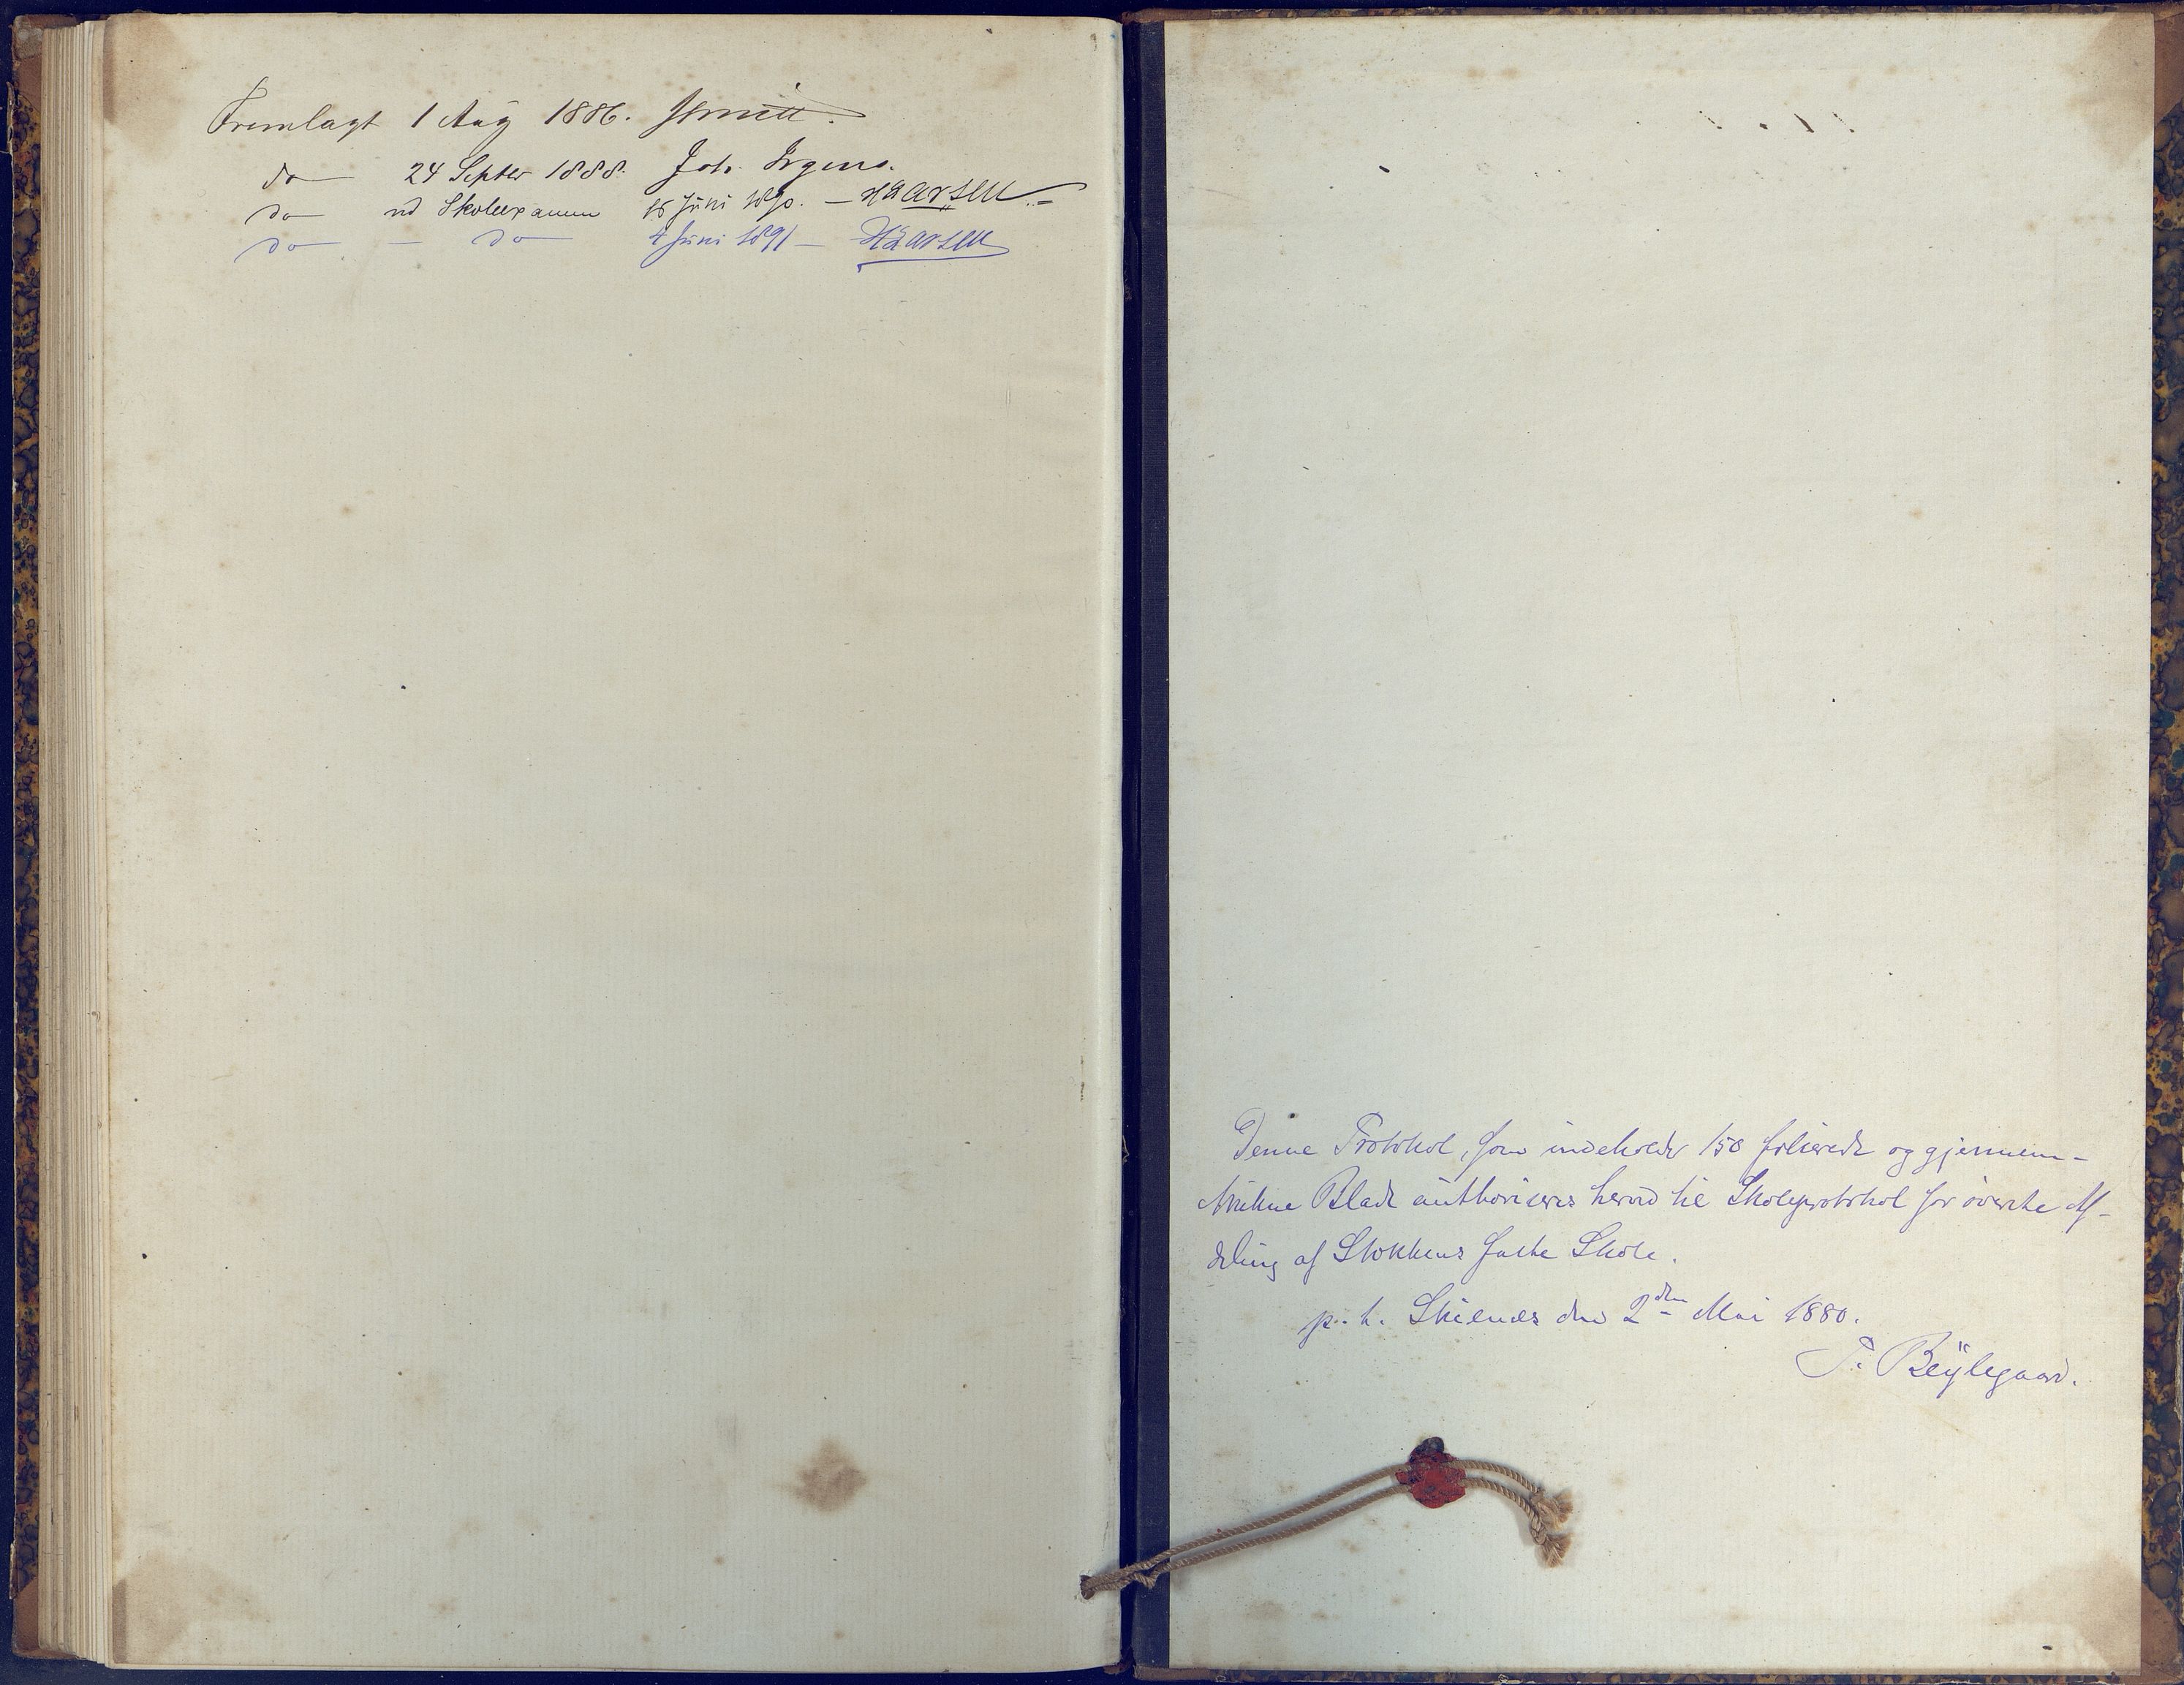 Fremlagt 1 Aug 1886.
do 24 Septbr 1888. Joh. Irgens.
do ved Skoleexamen 16 Juni 1890. – H Aarsen
do – do 4 Juni 1891 – H Aarsen
Denne Protokol, som indeholder 150 folierede og gjennem-
trukne Blade authoriseres herved til Skoleprotokol for øverste Af-
deling af Stokkens faste Skole.
p. t. den 2den Mai 1880.